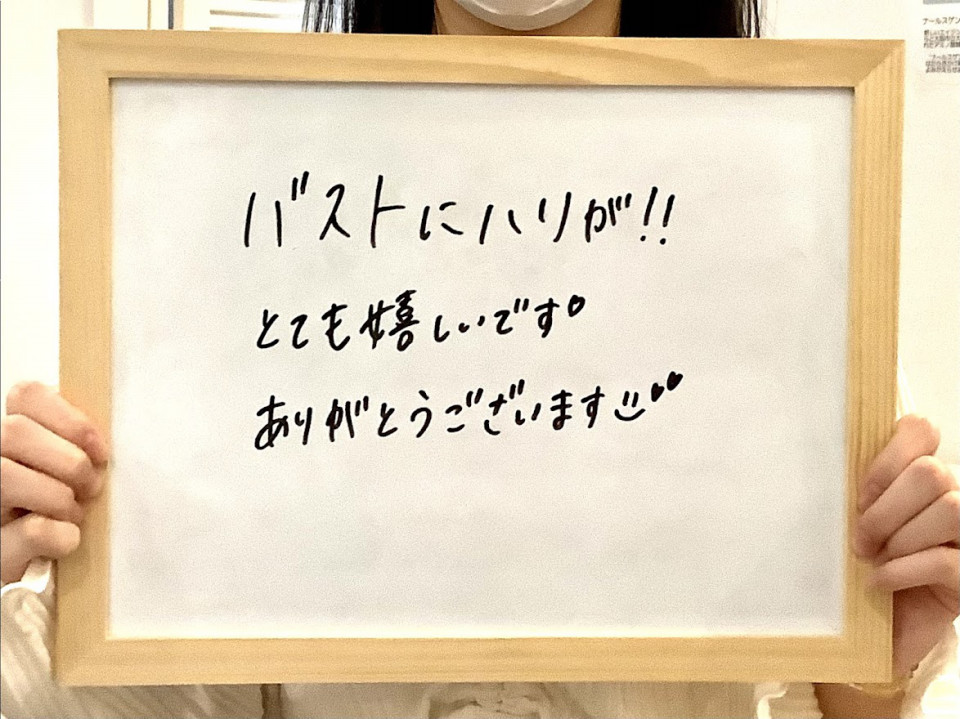 バストにハリが!!
とても嬉しいです♡
ありがとうございます☺♥♥
ナールスゲン